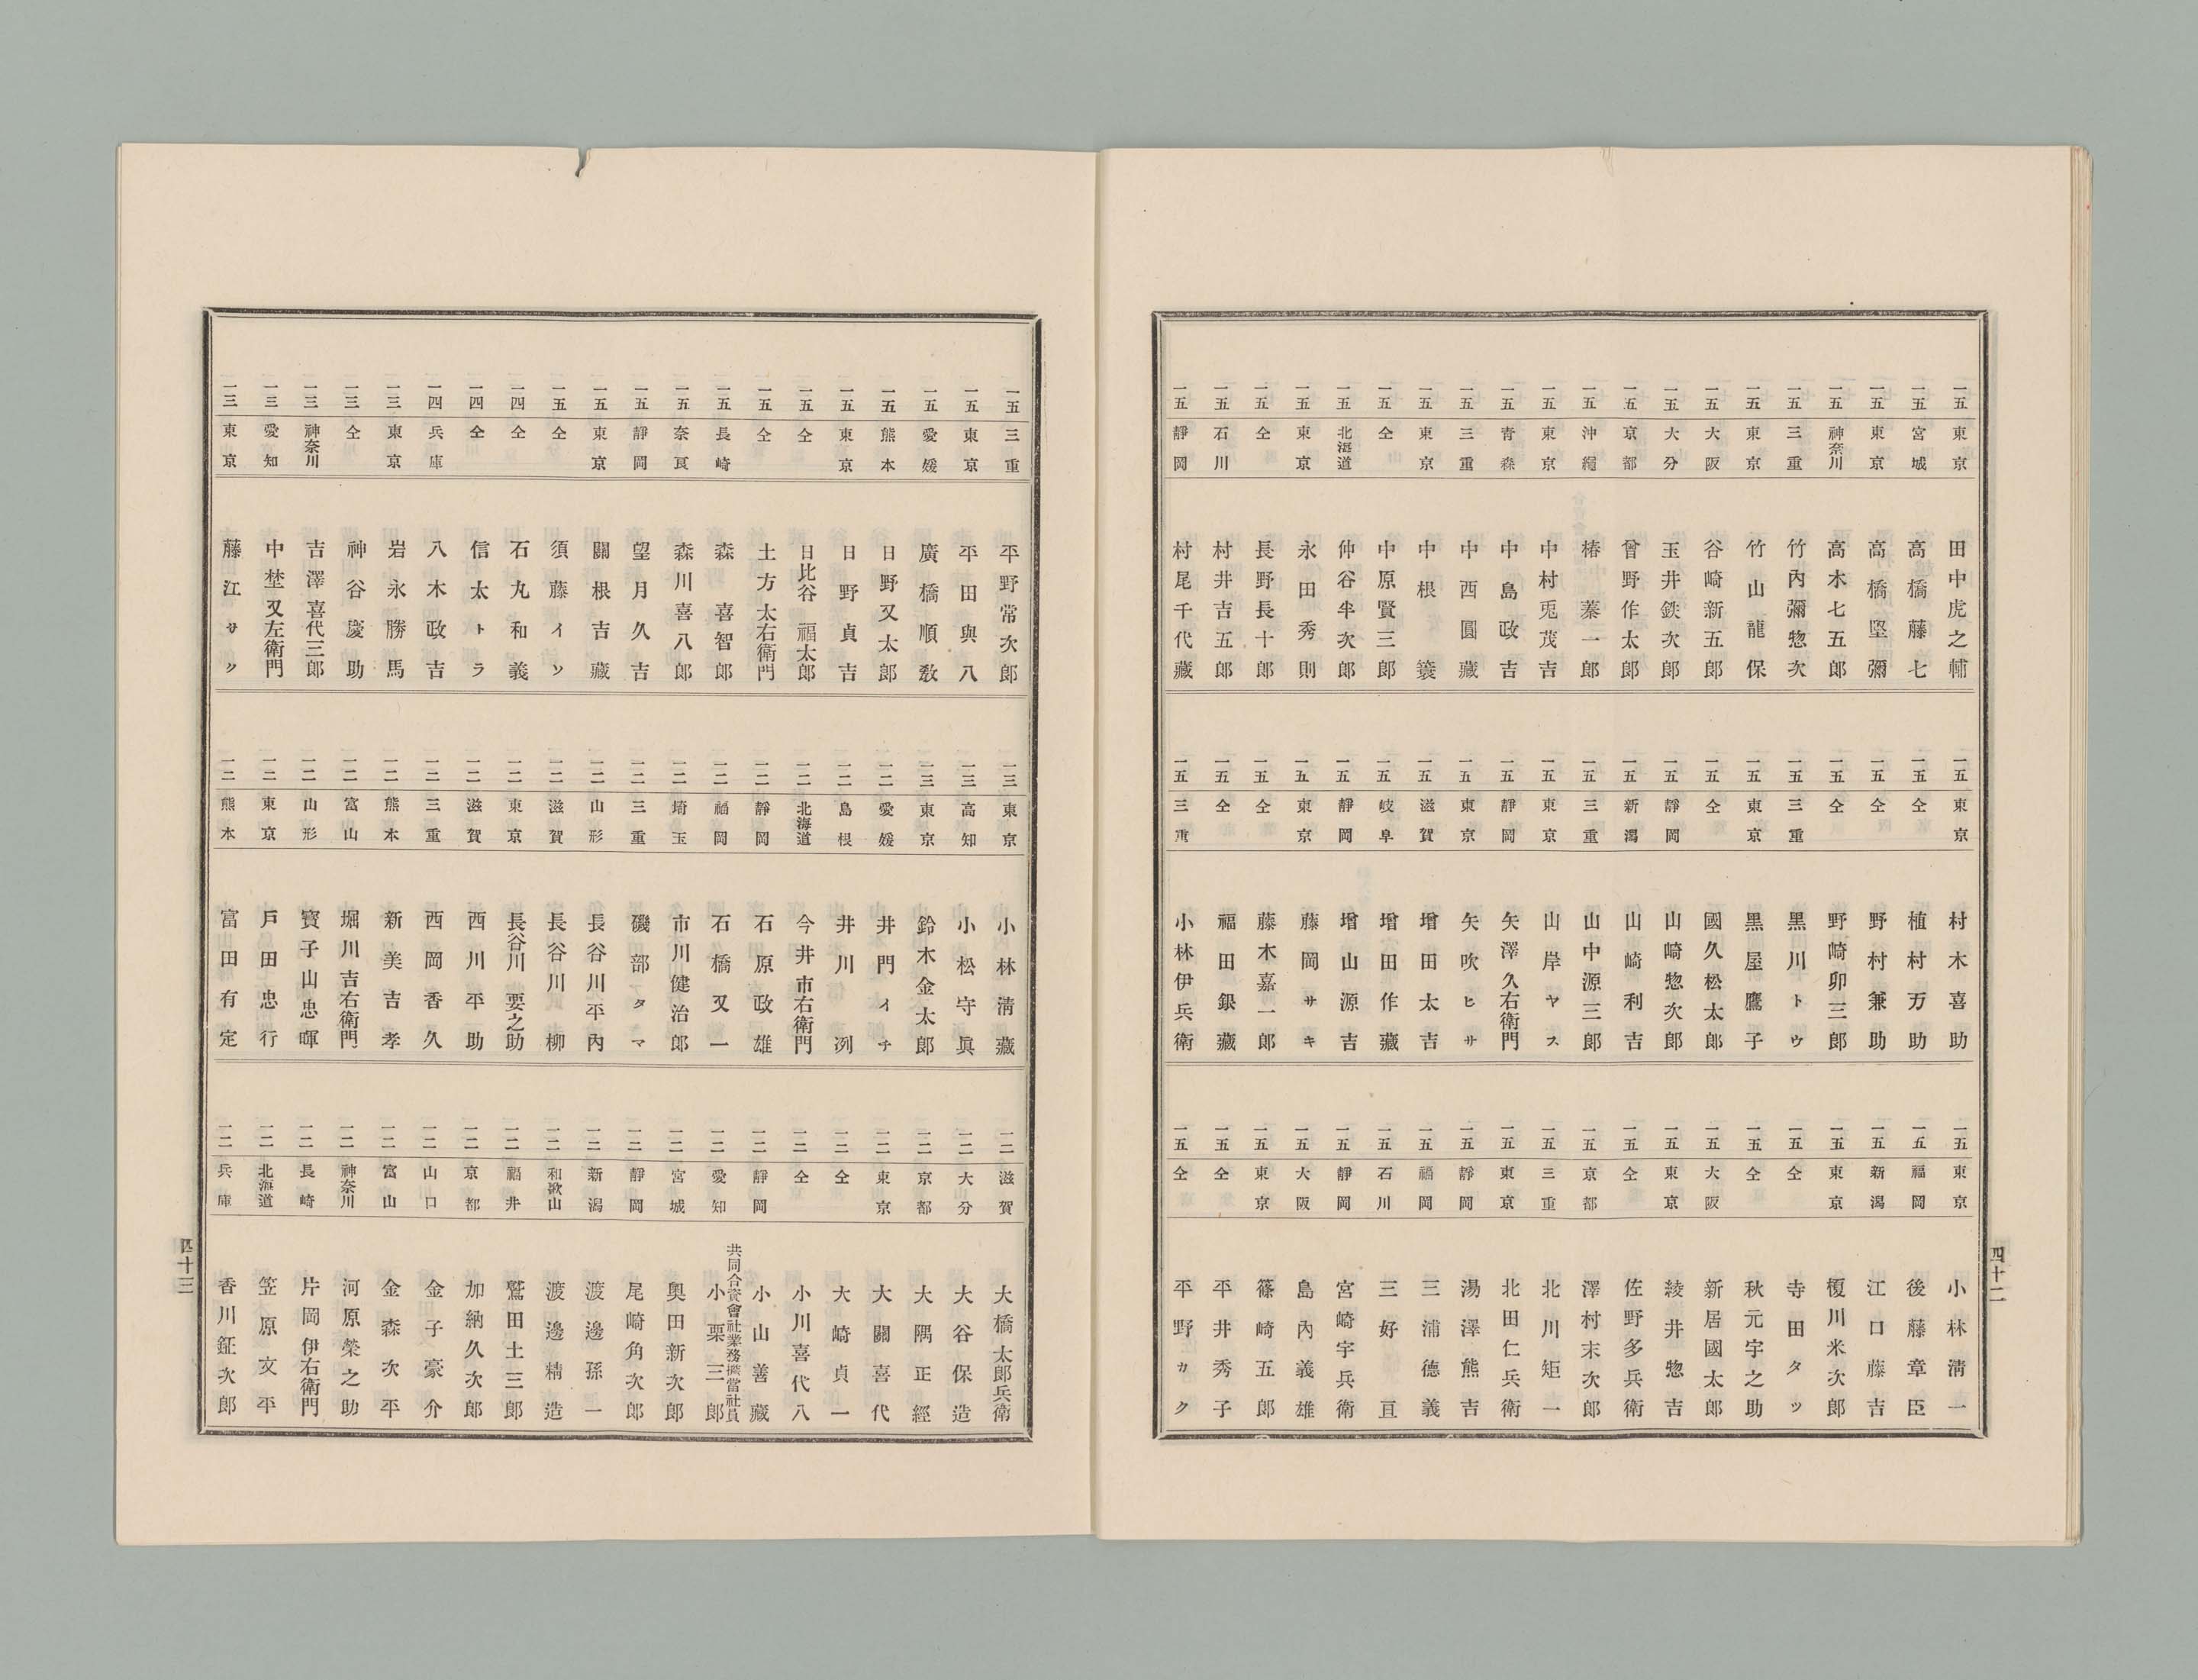 一五 東京 田中虎之輔
一五 宮城 高橋藤七
一五 東京 高橋堅彌
一五 神奈川 高木七五郎
一五 三重 竹內彌惣次
一五 東京 竹山龍保
一五 大阪 谷崎新五郎
一五 大分 玉井鉄次郎
一五 京都 曾野作太郎
一五 沖繩 椿蓁一郎
一五 東京 中村兎茂吉
一五 青森 中島政吉
一五 三重 中西圓藏
一五 東京 中根簔
一五 仝 中原賢三郎
一五 北海道 仲谷半次郎
一五 東京 永田秀則
一五 仝 長野長十郎
一五 石川 村井吉五郎
一五 靜岡 村尾千代藏
一五 東京 村木喜助
一五 仝 植村万助
一五 仝 野村兼助
一五 仝 野崎卯三郎
一五 三重 黒川トウ
一五 東京 黒屋鷹子
一五 仝 國久松太郎
一五 靜岡 山崎惣次郎
一五 新潟 山崎利吉
一五 三重 山中源三郎
一五 東京 山岸ヤス
一五 靜岡 矢澤久右衛門
一五 東京 矢吹ヒサ
一五 滋賀 增田太吉
一五 岐阜 增田作藏
一五 靜岡 增山源吉
一五 東京 藤岡サキ
一五 仝 藤木嘉一郎
一五 仝 福田銀藏
一五 三重 小林伊兵衛
一五 東京 小林淸一
一五 福岡 後藤章臣
一五 新潟 江口藤吉
一五 東京 榎川米次郎
一五 仝 寺田タツ
一五 仝 秋元宇之助
一五 大阪 新居國太郎
一五 東京 綾井惣吉
一五 仝 佐野多兵衛
一五 京都 澤村末次郎
一五 三重 北川矩一
一五 東京 北田仁兵衛
一五 靜岡 湯澤熊吉
一五 福岡 三浦德義
一五 石川 三好亘
一五 靜岡 宮崎宇兵衛
一五 大阪 島內義雄
一五 東京 篠崎五郎
一五 仝 平井秀子
一五 仝 平野カク
四十二
一五 三重 平野常次郎
一五 東京 平田與八
一五 愛媛 廣橋順敎
一五 熊本 日野又太郎
一五 東京 日野貞吉
一五 仝 日比谷福太郎
一五 仝 土方太右衛門
一五 長崎 森喜智郎
一五 奈良 森川喜八郎
一五 靜岡 望月久吉
一五 東京 關根吉藏
一五 仝 須藤イソ
一四 仝 石丸和義
一四 仝 信太トラ
一四 兵庫 八木政吉
一三 東京 岩永勝馬
一三 仝 神谷慶助
一三 神奈川 吉澤喜代三郎
一三 愛知 中埜又左衛門
一三 東京 藤江サク
一三 東京 小林淸藏
一三 高知 小松守眞
一三 東京 鈴木金太郎
一二 愛媛 井門イチ
一二 島根 井川洌
一二 北海道 今井市右衛門
一二 靜岡 石原政雄
一二 福岡 石橋又一
一二 埼玉 市川健治郎
一二 三重 磯部タマ
一二 山形 長谷川平內
一二 滋賀 長谷川柳
一二 東京 長谷川要之助
一二 滋賀 西川平助
一二 三重 西岡香久
一二 熊本 新美吉孝
一二 富山 堀川吉右衛門
一二 山形 寳子山忠暉
一二 東京 戶田忠行
一二 熊本 富田有定
一二 滋賀 大橋太郎兵衛
一二 大分 大谷保造
一二 京都 大隅正經
一二 東京 大關喜代
一二 仝 大崎貞一
一二 仝 小川喜代八
一二 靜岡 小山善藏
共同合資會社業務擔當社員
一二 愛知 小栗三郎
一二 宮城 奧田新次郎
一二 靜岡 尾崎角次郎
一二 新潟 渡邊孫一
一二 和歌山 渡邊精造
一二 福井 鷲田土三郎
一二 京都 加納久次郎
一二 山口 金子豪介
一二 富山 金森次平
一二 神奈川 河原榮之助
一二 長崎 片岡伊右衛門
一二 北海道 笠原文平
一二 兵庫 香川鉦次郎
四十三